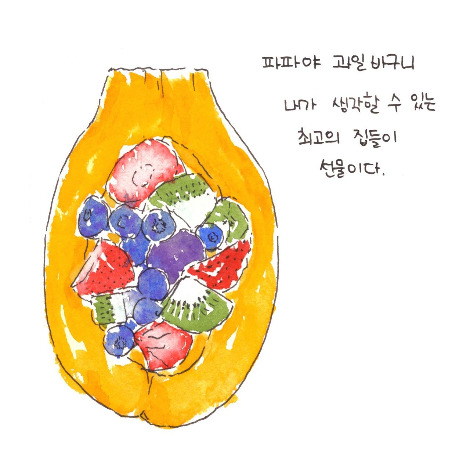 파파야 과일바구니
내가 생각할 수 있는
최고의 집들이
선물이다.